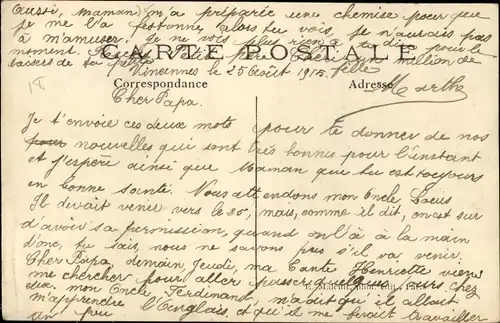 Aussi, maman m'a préparée une chemise pour que
je me l'a festonne, alors tu vois, je n'aurais pas
à m'amuser. Je ne vois plus rien à te dire pour le
moment.
CARTE POSTALE
million de
baisers de ta fille
Marthe
Correspondance
Adresse
Vincennes le 25 Août 1915.
Cher Papa.
Je t'envoie ces deux mots pour te donner de nos
nouvelles qui sont très bonnes pour l'instant
et j'espère ainsi que Maman que tu est toujours
en bonne santé. Nous attendons mon Oncle Louis
Il devait venir vers le 20, mais, comme il dit, on est sur
d'avoir sa permission, quand on l'à à la main
donc, tu sais, nous ne savons pas s'il va venir.
Cher Papa, demain Jeudi, ma Tante Henriette viens
me chercher pour aller passer quelque jours chez
eux, mon Oncle Ferdinand, m'a dit qu'il allait
m'apprendre l'Anglais, et qu'il me ferait travailler
un peu